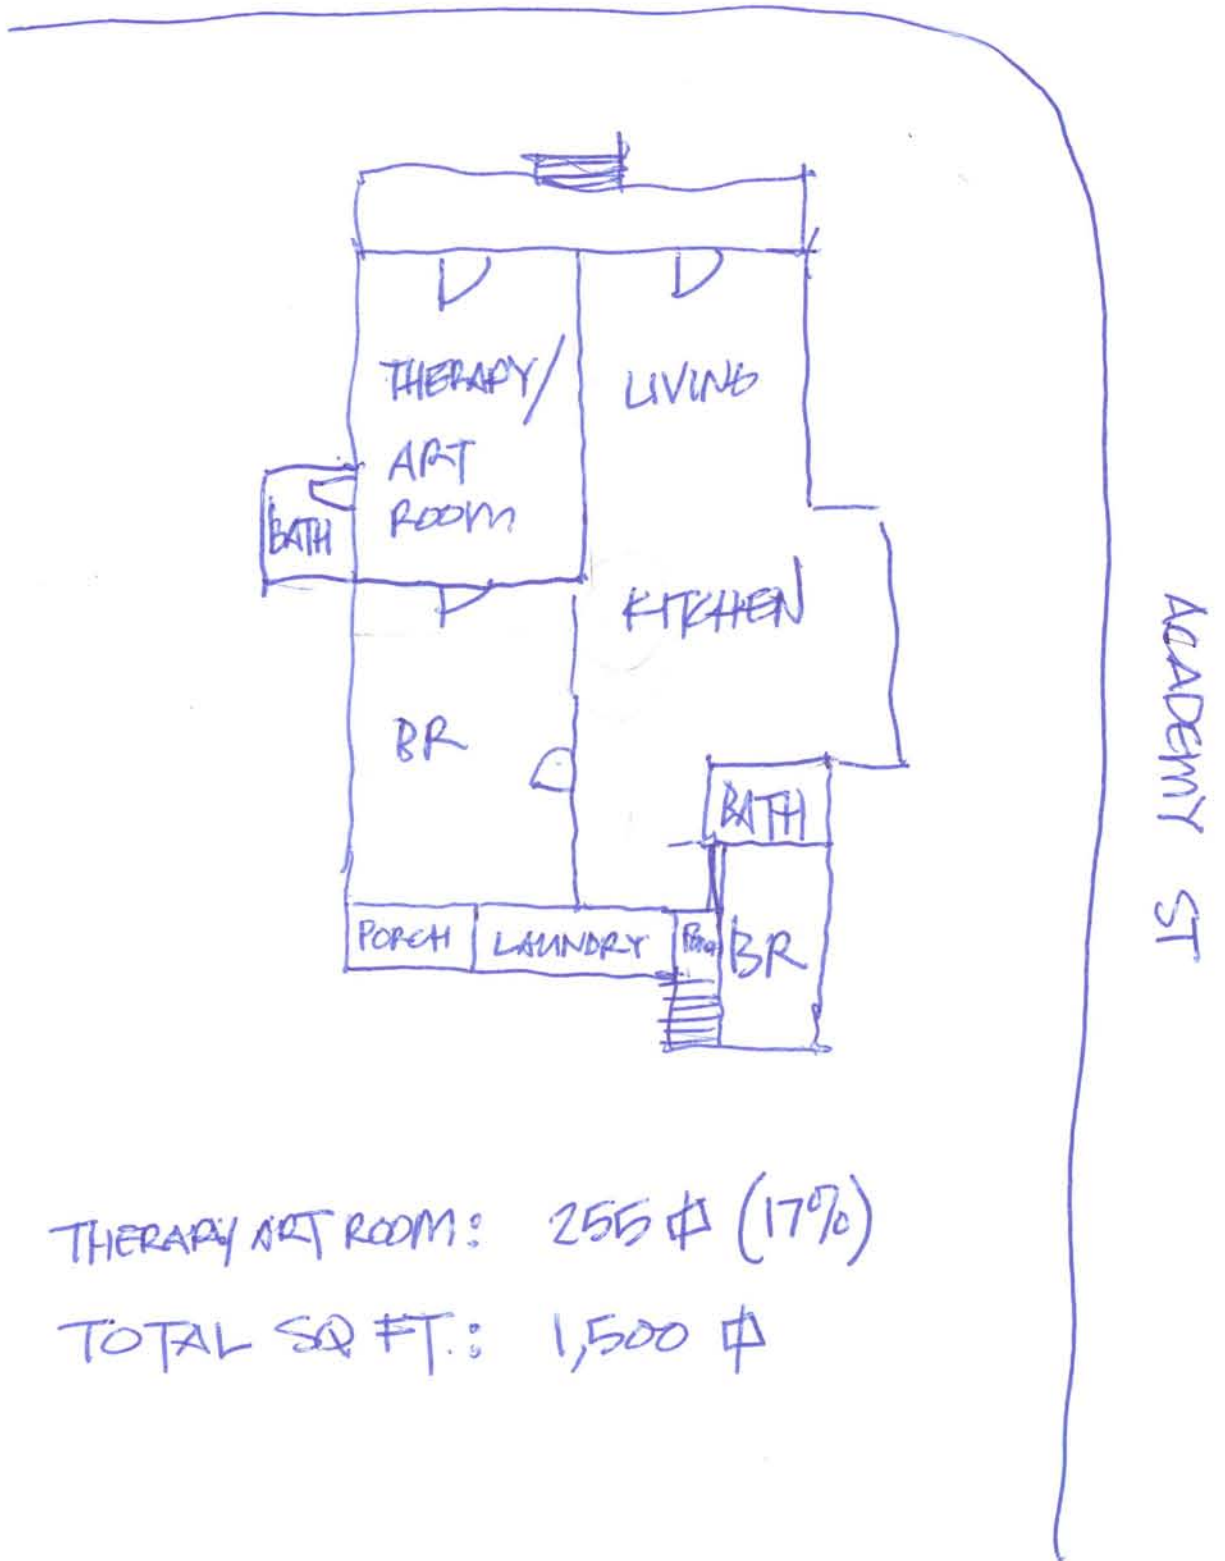 THERAPY/
ART
ROOM
LIVING
BATH
KITCHEN
BR
BATH
PORCH
LAUNDRY
BR
ACADEMY ST
THERAPY ART ROOM: 255 ⏍ (17%)
TOTAL SQ FT.: 1,500 ⏍